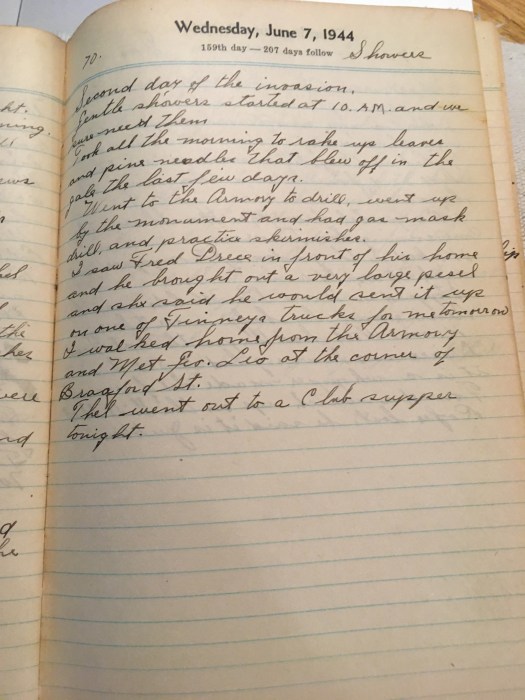 Wednesday, June 7, 1944
159th day — 207 days follow
Showers
70.
Second day of the invasion.
Gentle showers started at 10. A.M. and we
sure need them
Took all the morning to rake up leaves
and pine needles that blew off in the
gale the last few days.
Went to the Armory to drill, went up
by the monument and had gas-mask
drill, and practice skirmishes.
I saw Fred Drees in front of his home
and he brought out a very large
and she said he would sent it up
on one of Tinneys trucks for me tomorrow
I walked home from the Armory
and Met Geo. Leo at the corner of
Bradford St.
Thel went out to a Club supper
tonight.
ht.
ning.
the
her
nd
he